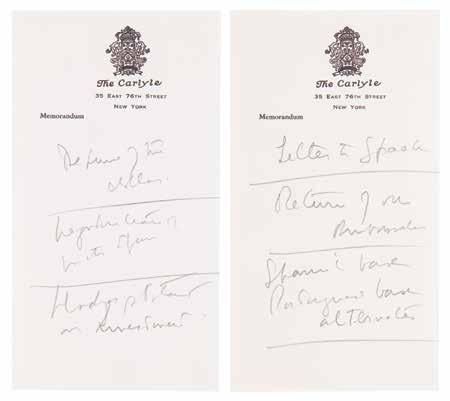 The Carlyle
35 EAST 76TH STREET
NEW YORK
Memorandum
Defense of the
dollar.
with Spain
Hodges
on investment
The Carlyle
35 EAST 76TH STREET
NEW YORK
Memorandum
Letter to Spaak
Return of our
Ambassador
Spanish base
Portuguese base
alternates